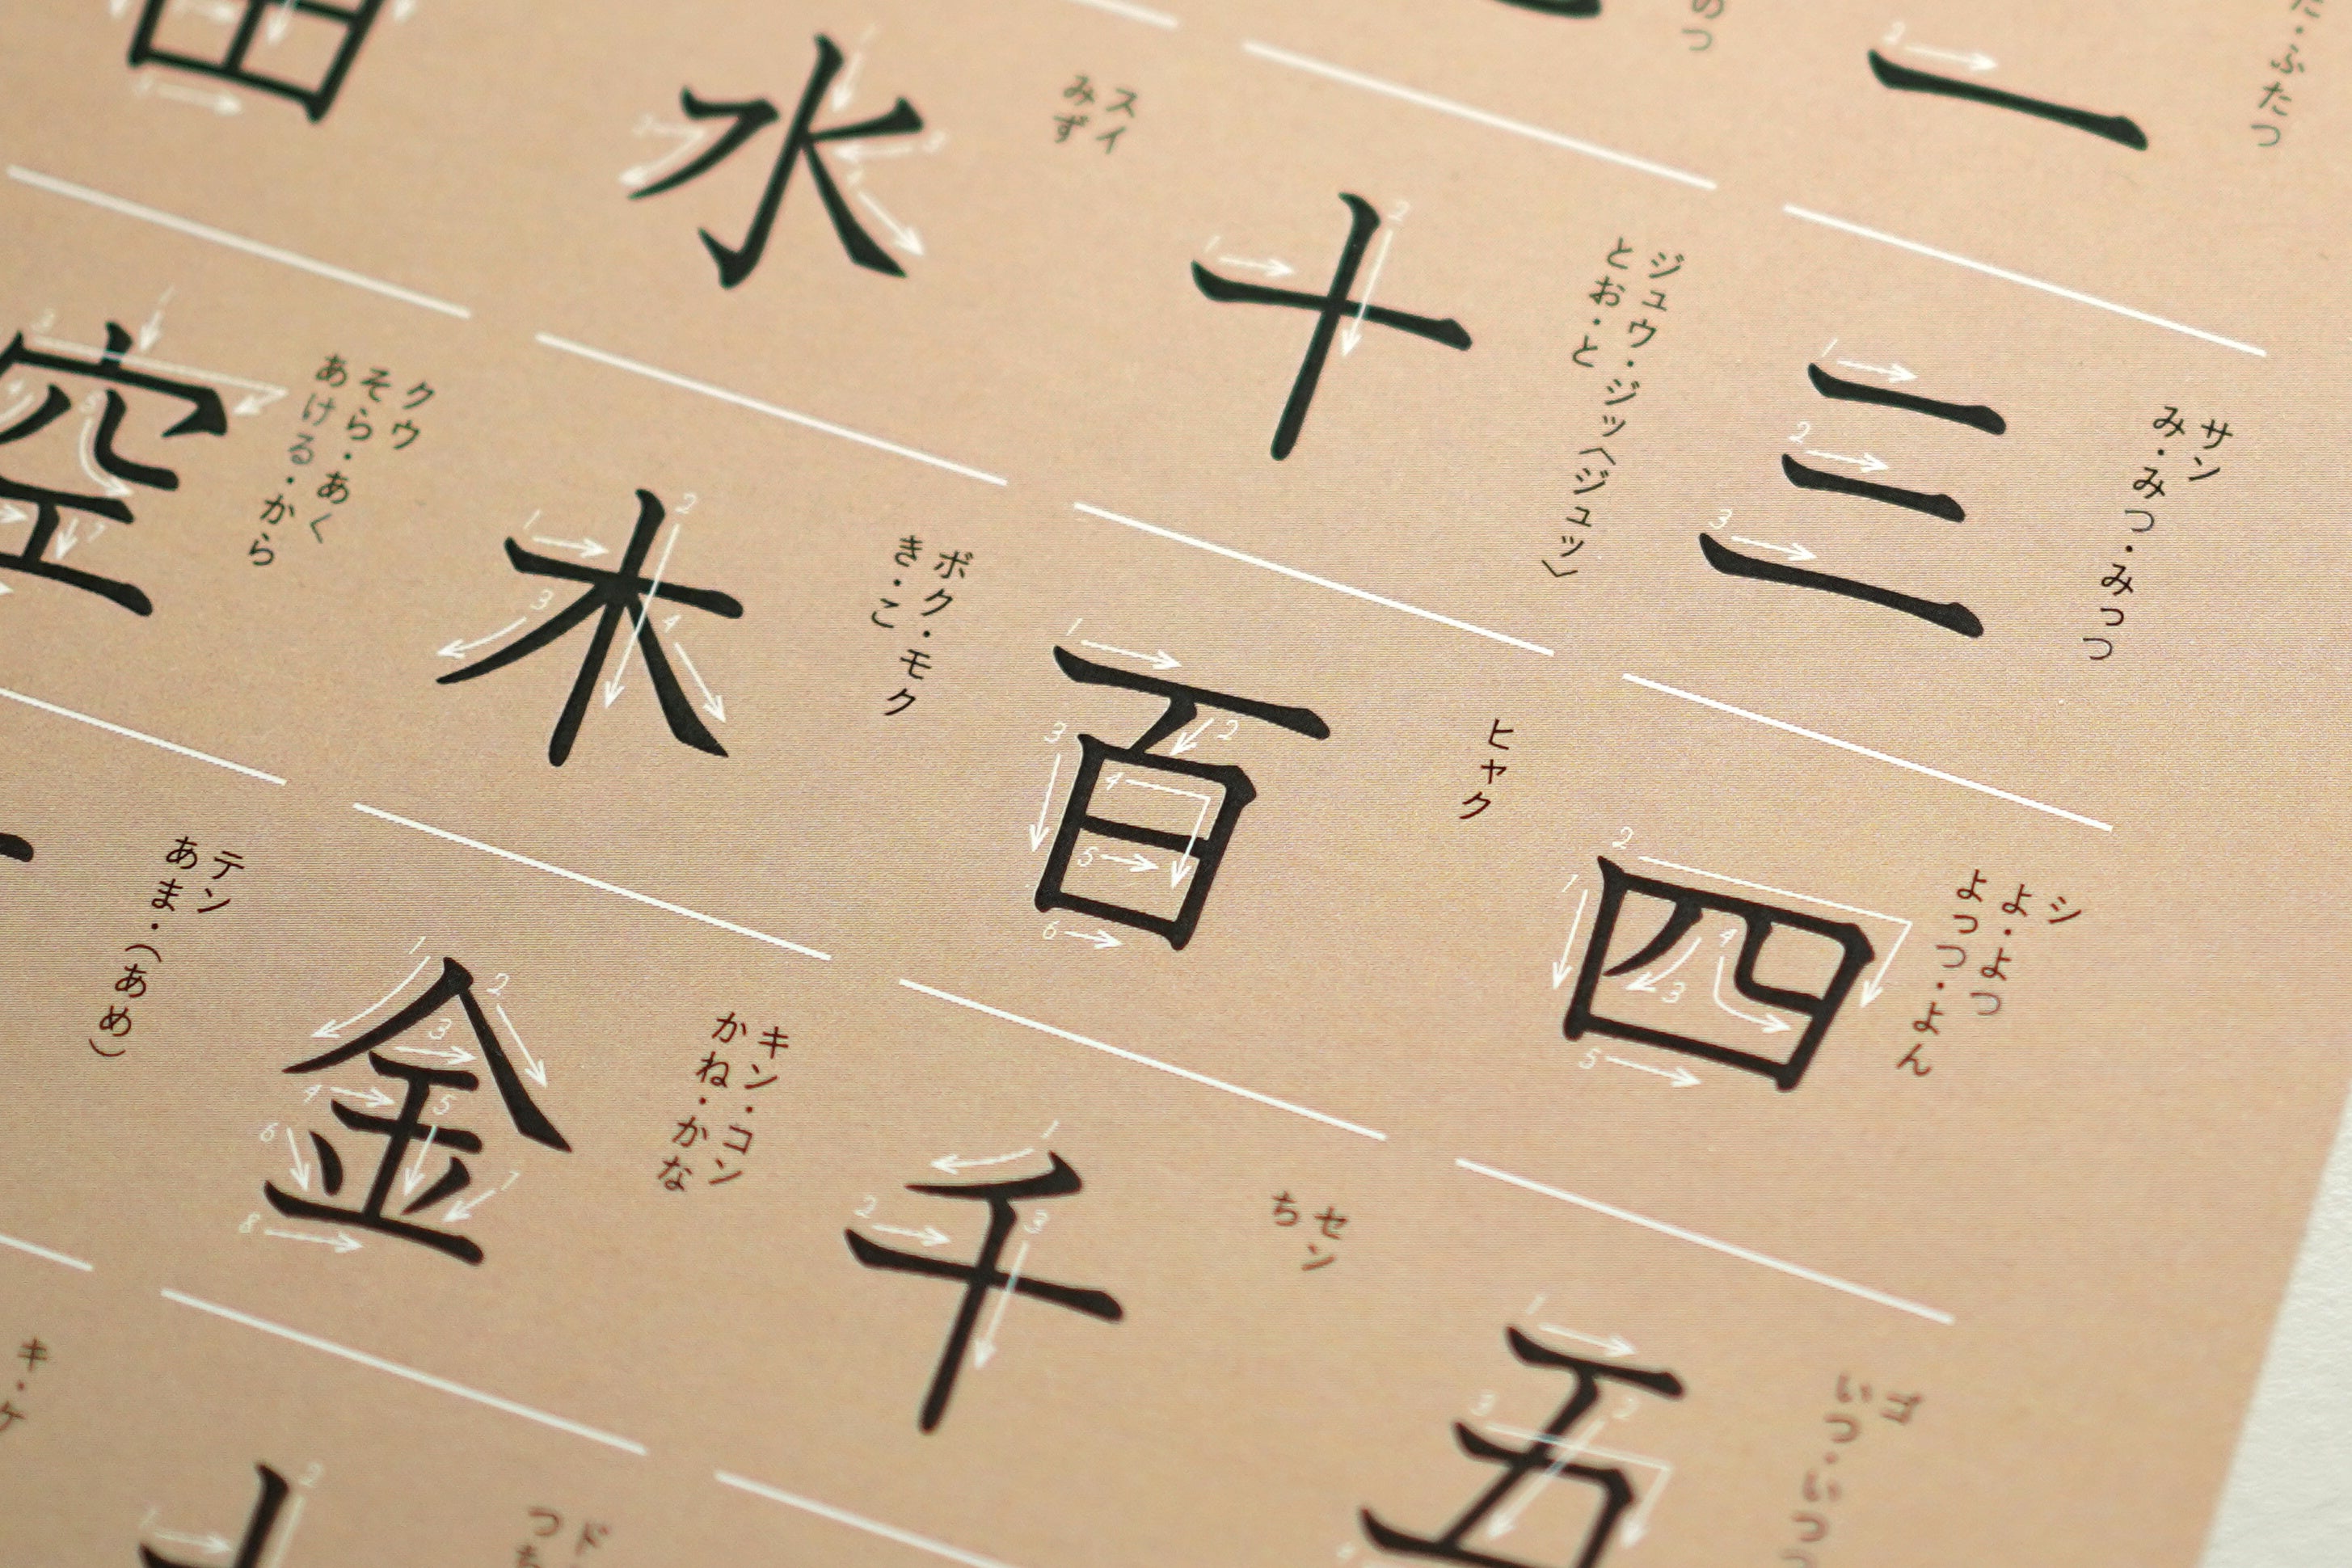 た・ふたつ
三
サン
み・みつ・みっつ
四
シ
よ・よつ
よっつ・よん
五
ゴ
いつ・いつつ
のつ
十
ジュウ・ジッ〈ジュッ〉
とお・と
百
ヒャク
千
セン
ち
水
スイ
みず
木
ボク・モク
き・こ
金
キン・コン
かね・かな
ド
つち
空
クウ
そら・あく
あける・から
テン
あま・(あめ)
キ・ケ